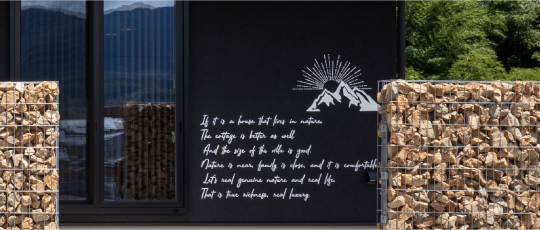 If it is a house that lies in nature,
The cottage is better as well
And the size of the villa is good.
Nature is near, family is close, and it is comfortable
Let's real genuine nature and real life.
That is true richness, real luxury.